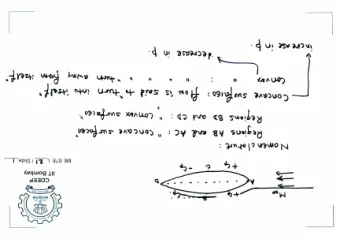 CDEEP
IIT Bombay
ME 678 L 21 / Slide 1
M∞
+Cp
+Cp
A
B
C
D
-Cp
-Cp
Nomenclature :
Regions AB and AC : "concave surfaces"
Regions BD and CD : "convex surfaces"
Concave surfaces : flow is said to "turn into itself"
Convex " : " " " " "turn away from itself"
increase in p.
decrease in p.